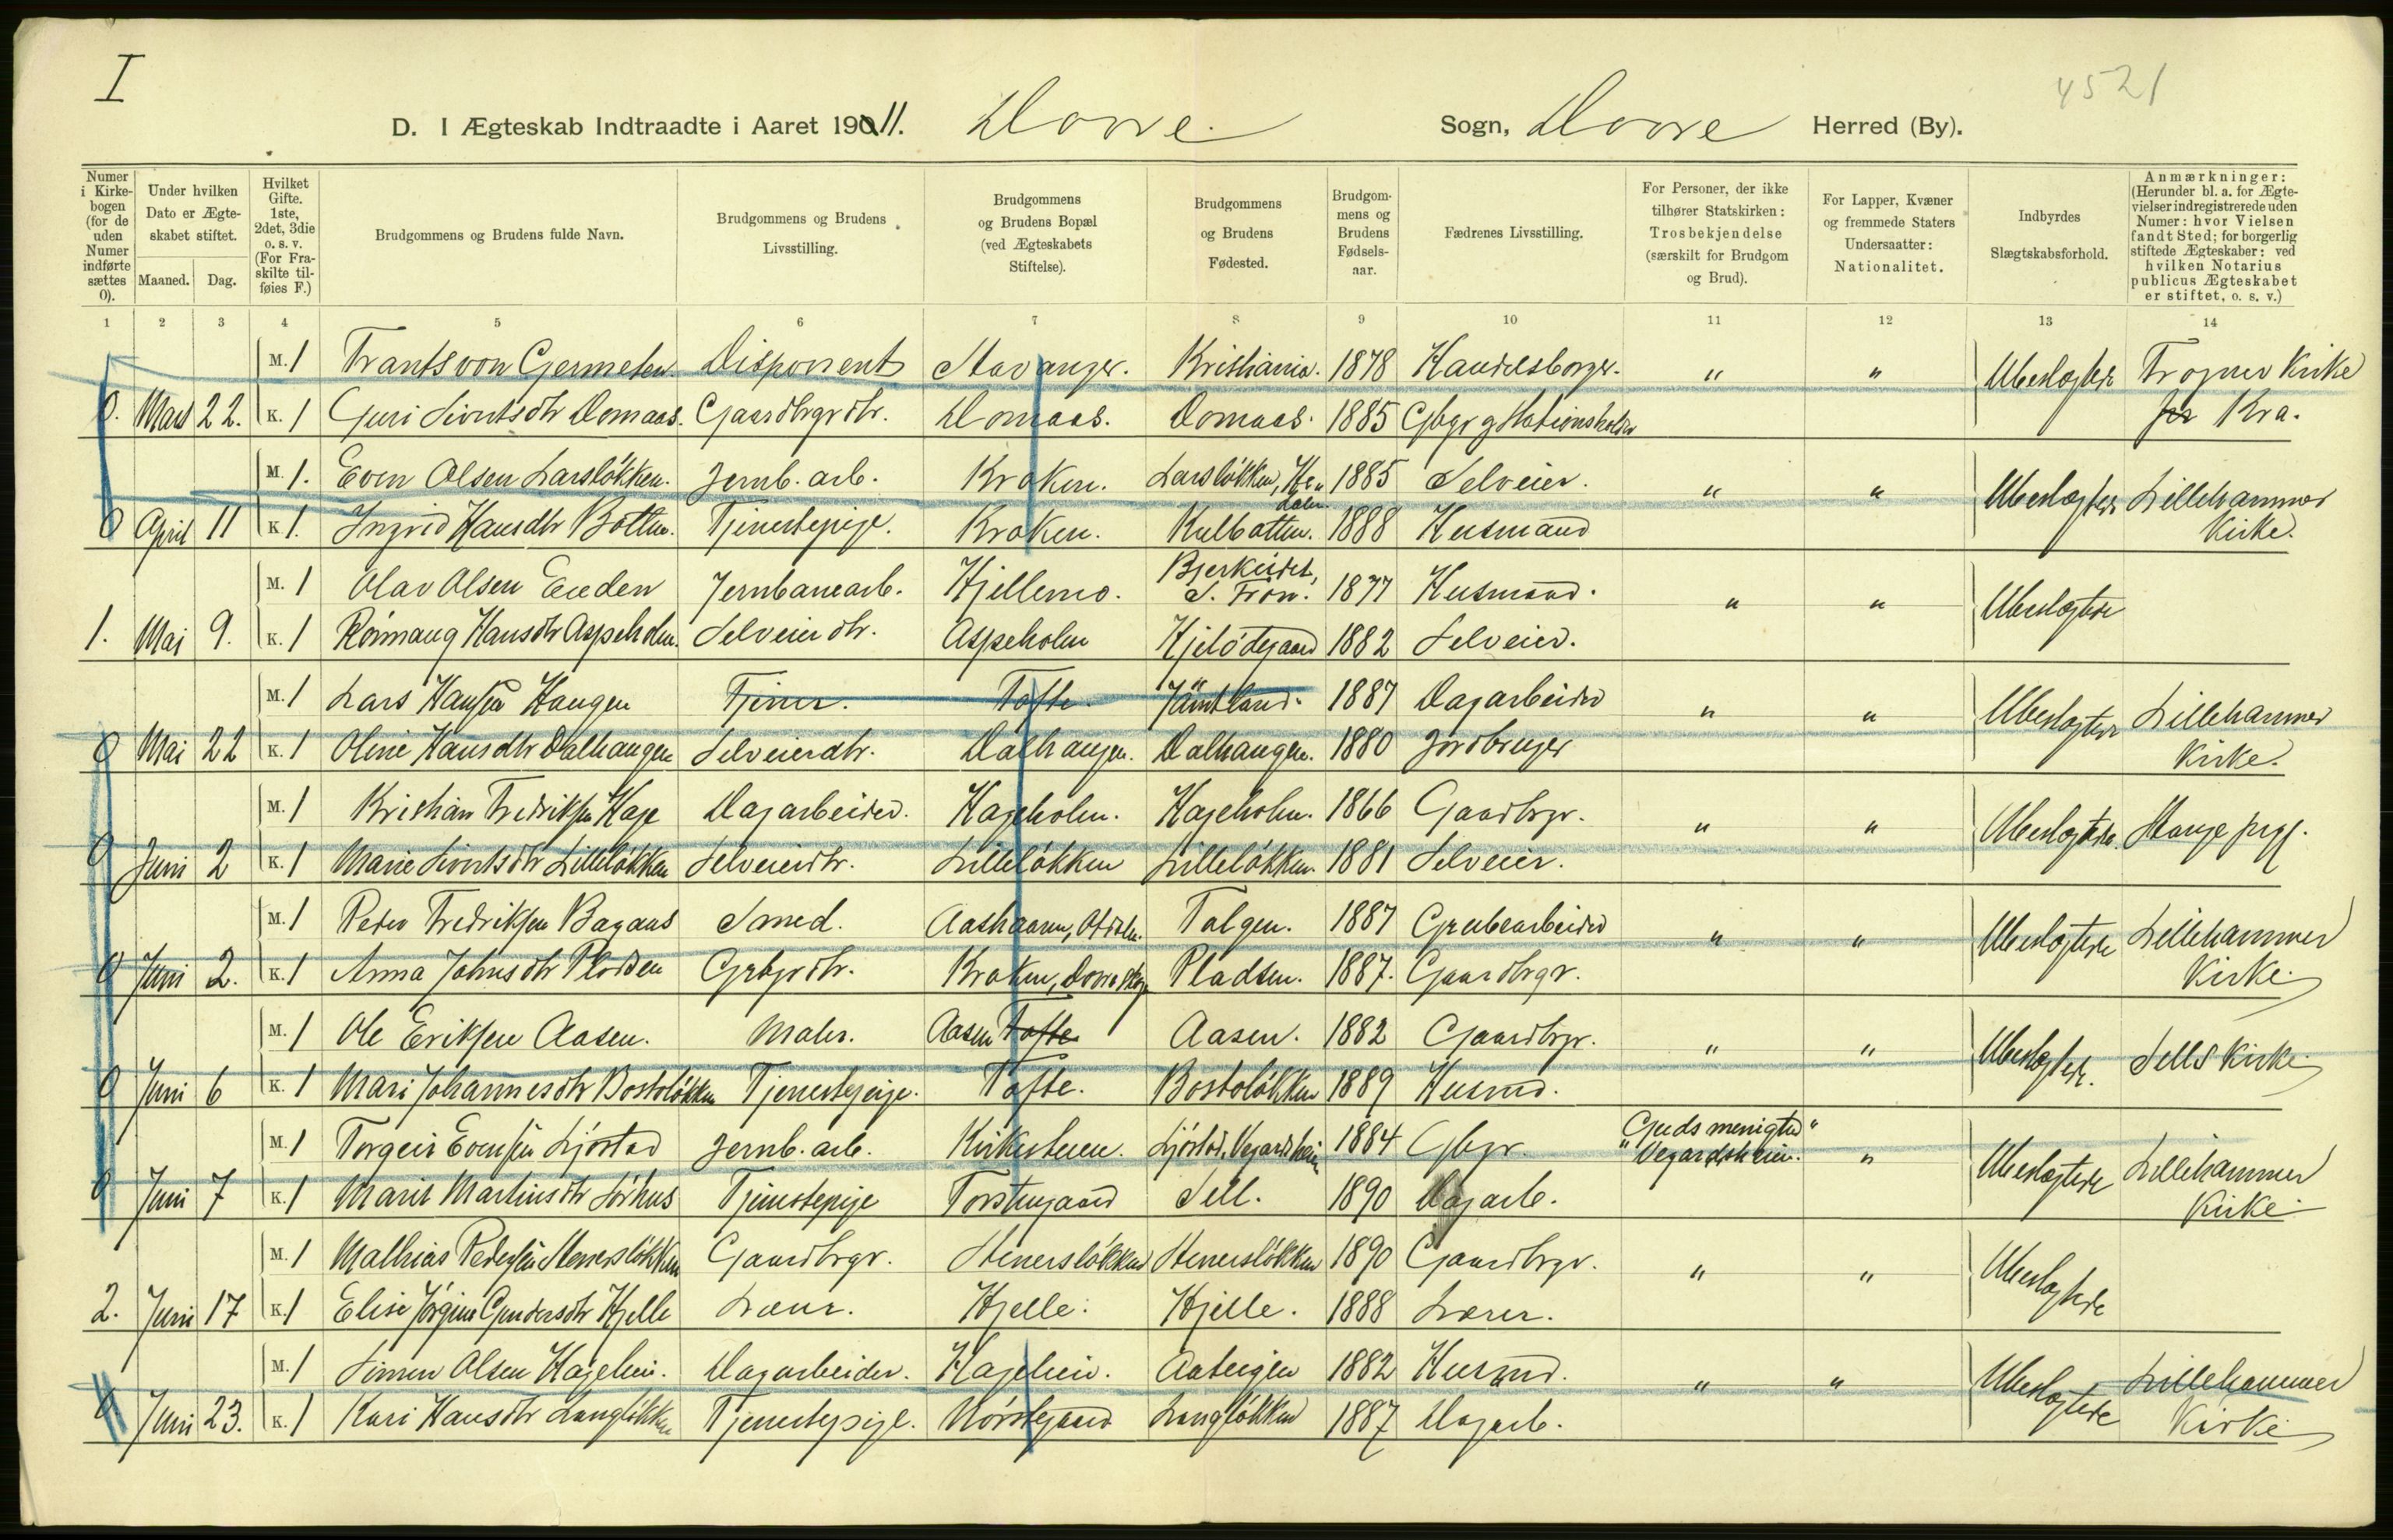 I
4521
D. I Ægteskab Indtraadte i Aaret 1911. Dovre. Sogn, Dovre Herred (By).
Numer i Kirkebogen (for de uden Numer indførte sættes 0).
Under hvilken Dato er Ægteskabet stiftet.
Maaned. Dag.
Hvilket Gifte. 1ste, 2det, 3die o. s. v. (For Fraskilte tilføies F.)
Brudgommens og Brudens fulde Navn.
Brudgommens og Brudens Livsstilling.
Brudgommens og Brudens Bopæl (ved Ægteskabets Stiftelse).
Brudgommens og Brudens Fødested.
Brudgommens og Brudens Fødselsaar.
Fædrenes Livsstilling.
For Personer, der ikke tilhører Statskirken: Trosbekjendelse (særskilt for Brudgom og Brud).
For Lapper, Kvæner og fremmede Staters Undersaatter: Nationalitet.
Indbyrdes Slægtskabsforhold.
Anmærkninger: (Herunder bl. a. for Ægtevielser indregistrerede uden Numer: hvor Vielsen fandt Sted; for borgerlig stiftede Ægteskaber: ved hvilken Notarius publicus Ægteskabet er stiftet, o. s. v.)
1 2 3 4 5 6 7 8 9 10 11 12 13 14
M. 1 Frants von Germeten. Disponent Stavanger. Kristiania. 1878 Handelsborger. " " Ubeslegtede Frogner Kirke
0. Mars 22. K. 1 Guri Sivertsdtr Domaas. Gaardbrgrdtr. Domaas. Domaas. 1885 Gbgr og Stationsholder Kra.
M. 1. Even Olsen Larsløkken. Jernb. arb. Kroken. Larsløkken, 1885 Selveier. " " Ubeslegtede Lillehammer
0 April 11 K 1. Ingrid Hansdtr Botten. Tjenestepige. Kroken. Kulbotten. 1888 Husmand Kirke.
M. 1 Olav Olsen Enden Jernbanearb. Hjellemo. Bjerkeidet, S. Fron. 1877 Husmand. " " Ubeslegtede
1. Mai 9. K. 1 Rønnaug Hansdtr Aspeholen. Selveierdtr. Aspeholen Kjelødegaard 1882 Selveier.
M. 1 Lars Hansen Haugen Tjener. Tofte. Jämtland. 1887 Dagarbeider " " Ubeslegtede Lillehammer
0 Mai 22 K. 1 Oline Hansdtr Dalhaugen Selveierdtr. Dalhaugen. Dalhaugen. 1880 Jordbruger Kirke.
M. 1 Kristian Fredriksen Hage Dagarbeider. Hageholen. Hageholen. 1866 Gaardbrgr. " " Ubeslegtede. Stange prgj.
0 Juni 2 K. 1 Marie Sivertsdtr Lilleløkken Selveierdtr. Lilleløkken Lilleløkken. 1881 Selveier.
M. 1 Peder Fredriksen Bagaas Smed. Tolgen. 1887 Grubearbeider " " Ubeslegtede Lillehammer
0 Juni 2. K. 1 Anna Johnsdtr Pladsen Grbgrdtr. Kroken, Pladsen. 1887. Gaardbrgr. Kirke.
M. 1 Ole Eriksen Aasen. Maler. Aasen Tofte Aasen. 1882 Gaardbrgr. " " Ubeslegtede. Sells Kirke.
0 Juni 6 K. 1 Mari Johannesdtr Bostoløkken Tjenestepige. Tofte. Bostoløkken 1889 Husmd.
M. 1 Torgeir Evensen Ljøstad Jernb. arb. Kirkestuen. Ljøstad, Vegardsheien 1884 Gbgr. "Guds menighed" Vegardsheien. " Ubeslegtede Lillehammer
0 Juni 7 K. 1 Marit Martinsdtr Sørhus Tjenestepige Torstengaard Sell. 1890 Dagarb. Kirke
M. 1 Mathias Pedersen Stenersløkken Gaardbrgr. Stenersløkken Stenersløkken 1890 Gaardbrgr. " " Ubeslegtede
2. Juni 17 K. 1 Elise Jørgine Gundersdtr Hjelle Lærer. Hjelle. Hjelle. 1888 Lærer.
M. 1 Simen Olsen Hagelien. Dagarbeider. Hagelien. 1882 Husmd. " " Ubeslegtede Lillehammer
0 Juni 23. K. 1 Kari Hansdtr Langløkken Tjenestepige. Nørstegaard Langløkken 1887 Dagarb. Kirke